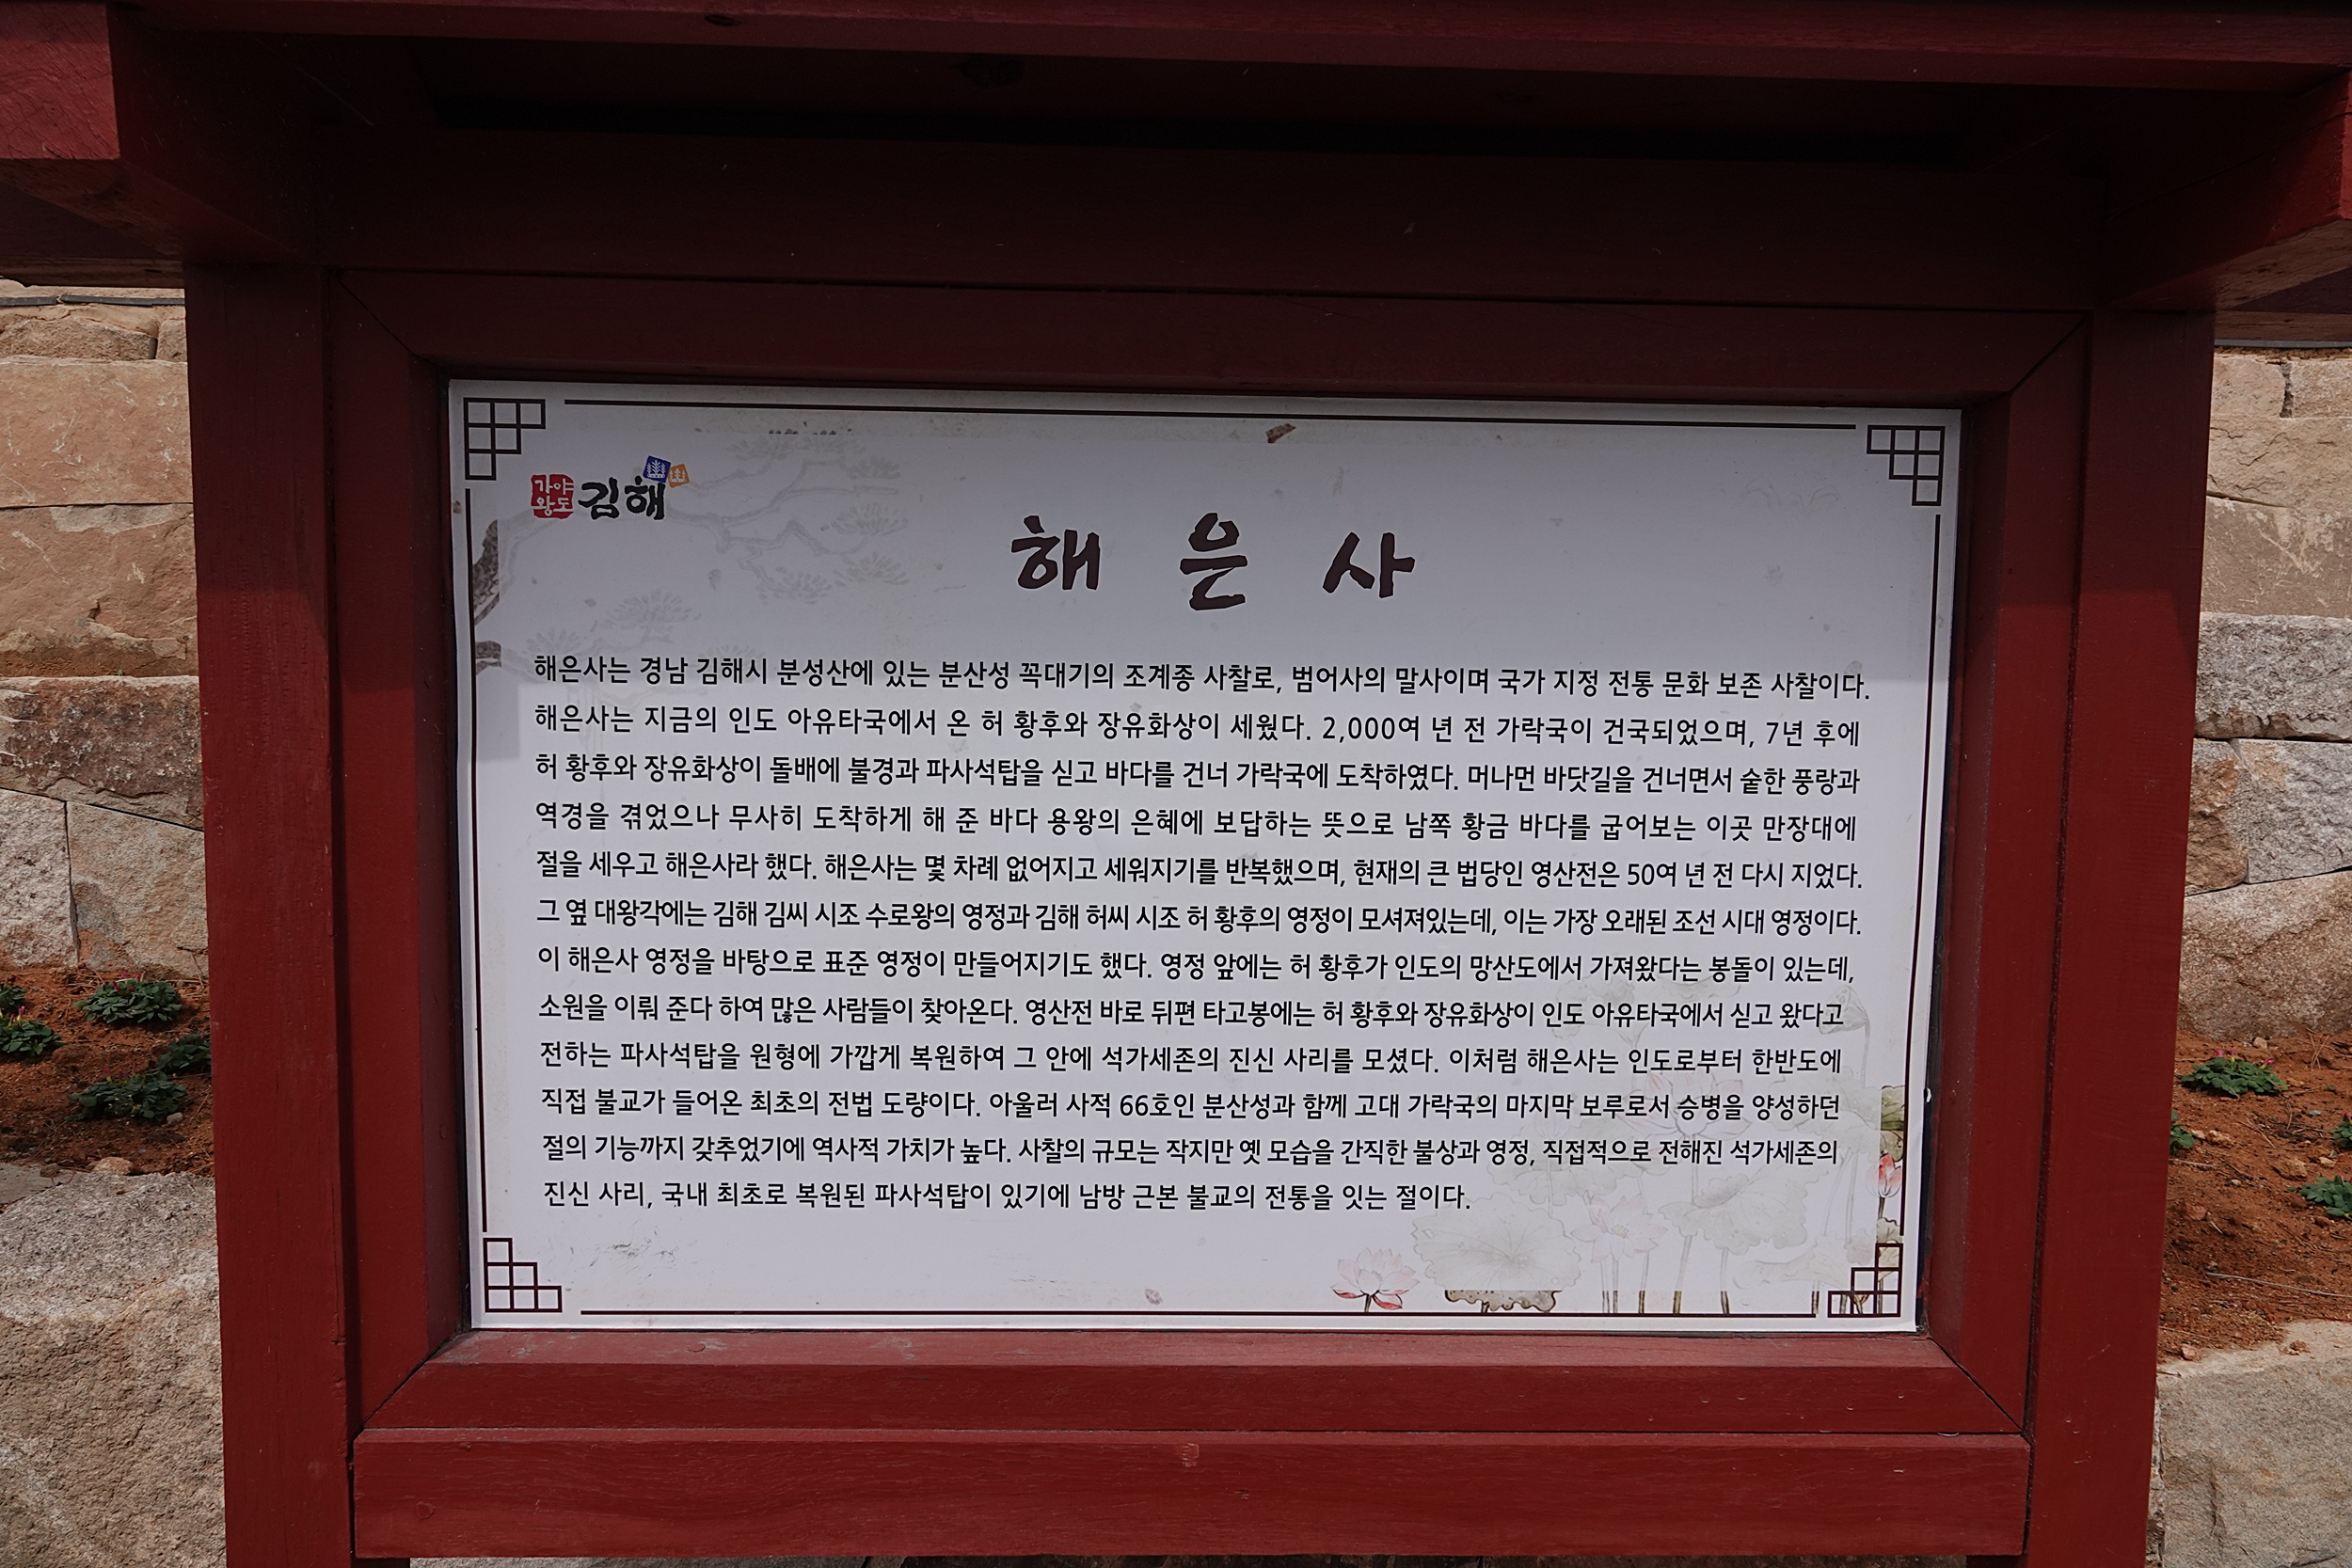 가야
왕도 김해
해은사
해은사는 경남 김해시 분성산에 있는 분산성 꼭대기의 조계종 사찰로, 범어사의 말사이며 국가 지정 전통 문화 보존 사찰이다.
해은사는 지금의 인도 아유타국에서 온 허 황후와 장유화상이 세웠다. 2,000여 년 전 가락국이 건국되었으며, 7년 후에
허 황후와 장유화상이 돌배에 불경과 파사석탑을 싣고 바다를 건너 가락국에 도착하였다. 머나먼 바닷길을 건너면서 숱한 풍랑과
역경을 겪었으나 무사히 도착하게 해 준 바다 용왕의 은혜에 보답하는 뜻으로 남쪽 황금 바다를 굽어보는 이곳 만장대에
절을 세우고 해은사라 했다. 해은사는 몇 차례 없어지고 세워지기를 반복했으며, 현재의 큰 법당인 영산전은 50여 년 전 다시 지었다.
그 옆 대왕각에는 김해 김씨 시조 수로왕의 영정과 김해 허씨 시조 허 황후의 영정이 모셔져있는데, 이는 가장 오래된 조선 시대 영정이다.
이 해은사 영정을 바탕으로 표준 영정이 만들어지기도 했다. 영정 앞에는 허 황후가 인도의 망산도에서 가져왔다는 봉돌이 있는데,
소원을 이뤄 준다 하여 많은 사람들이 찾아온다. 영산전 바로 뒤편 타고봉에는 허 황후와 장유화상이 인도 아유타국에서 싣고 왔다고
전하는 파사석탑을 원형에 가깝게 복원하여 그 안에 석가세존의 진신 사리를 모셨다. 이처럼 해은사는 인도로부터 한반도에
직접 불교가 들어온 최초의 전법 도량이다. 아울러 사적 66호인 분산성과 함께 고대 가락국의 마지막 보루로서 승병을 양성하던
절의 기능까지 갖추었기에 역사적 가치가 높다. 사찰의 규모는 작지만 옛 모습을 간직한 불상과 영정, 직접적으로 전해진 석가세존의
진신 사리, 국내 최초로 복원된 파사석탑이 있기에 남방 근본 불교의 전통을 잇는 절이다.